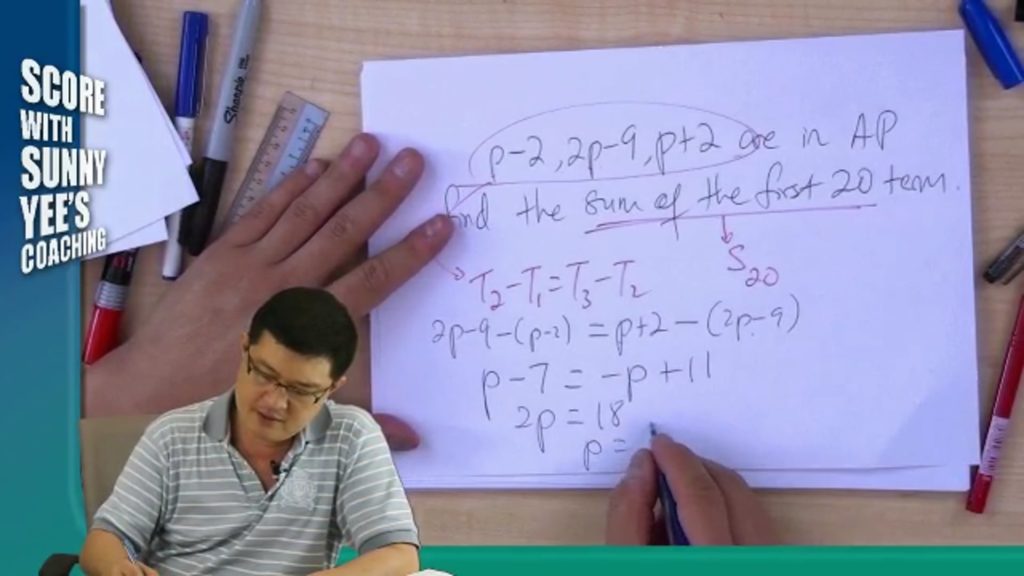 SCORE
WITH
SUNNY
YEE'S
COACHING
Sharpie
p-2, 2p-9, p+2 are in AP
find the sum of the first 20 term.
S₂₀
T₂-T₁=T₃-T₂
2p-9-(p-2) = p+2-(2p-9)
p-7 = -p+11
2p = 18
p =